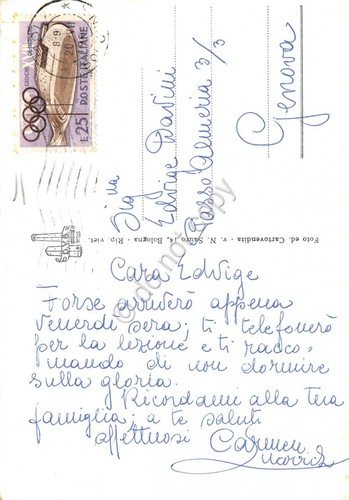 Cara Edvige
Forse arriverò appena
venerdì sera; ti telefonerò
per la lezione e ti racco-
mando di non dormire
sulla gloria.
Ricordami alla tua
famiglia; a te saluti
affettuosi Carmen
Sig.na
Edvige Davini
Passo Almeria 3/3
Genova
Foto ed. Cartovendita - v. N. Sauro 14, Bologna - Rip. viet.
L.25 POSTE ITALIANE
do not copy